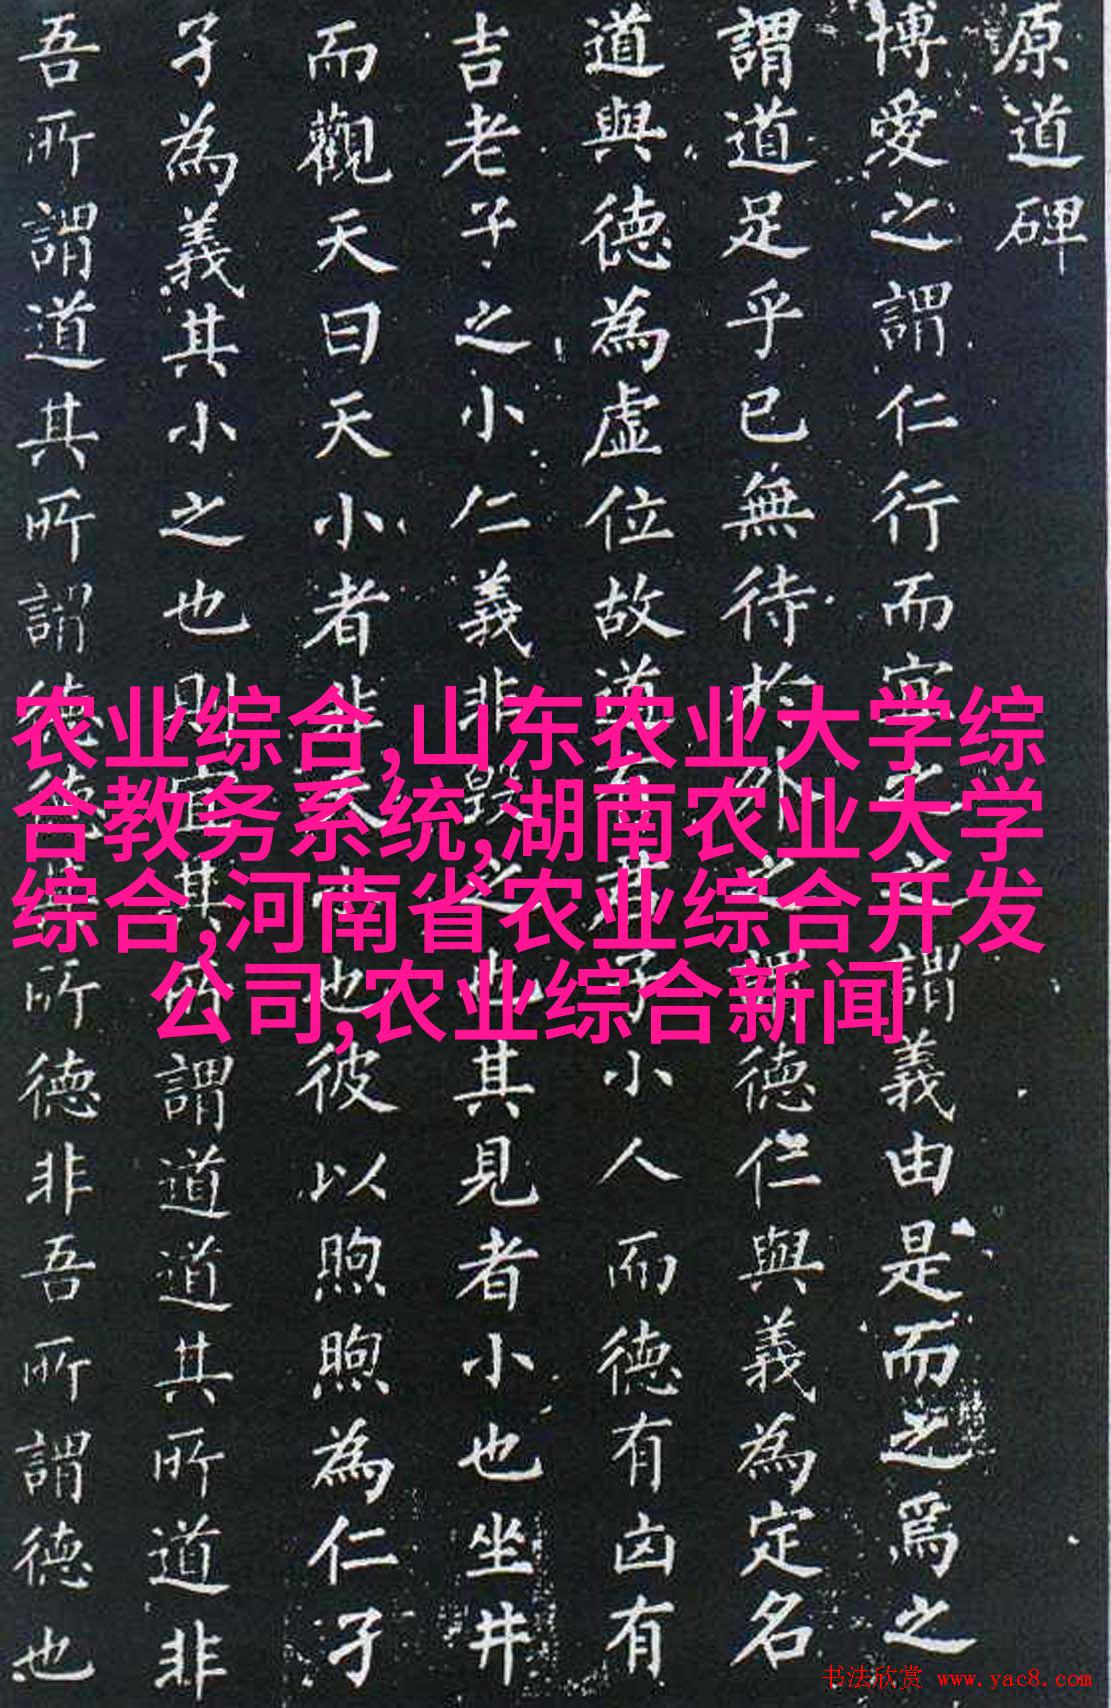 原道碑
博愛之謂仁行而宜之之謂義由是而之焉之
謂道足乎已無待於外之謂德仁與義為定名
道與德為虛位故道有君子小人而德有凶有
吉老子之小仁義非毀之也其見者小也坐井
而觀天曰天小者非天小也彼以煦煦為仁孑
孑為義其小之也則宜其所謂道道其所道非
吾所謂道其所謂德德其所德非吾所謂德也
农业综合,山东农业大学综
合教务系统,湖南农业大学
综合,河南省农业综合开发
公司,农业综合新闻
书法欣赏 www.yac8.com